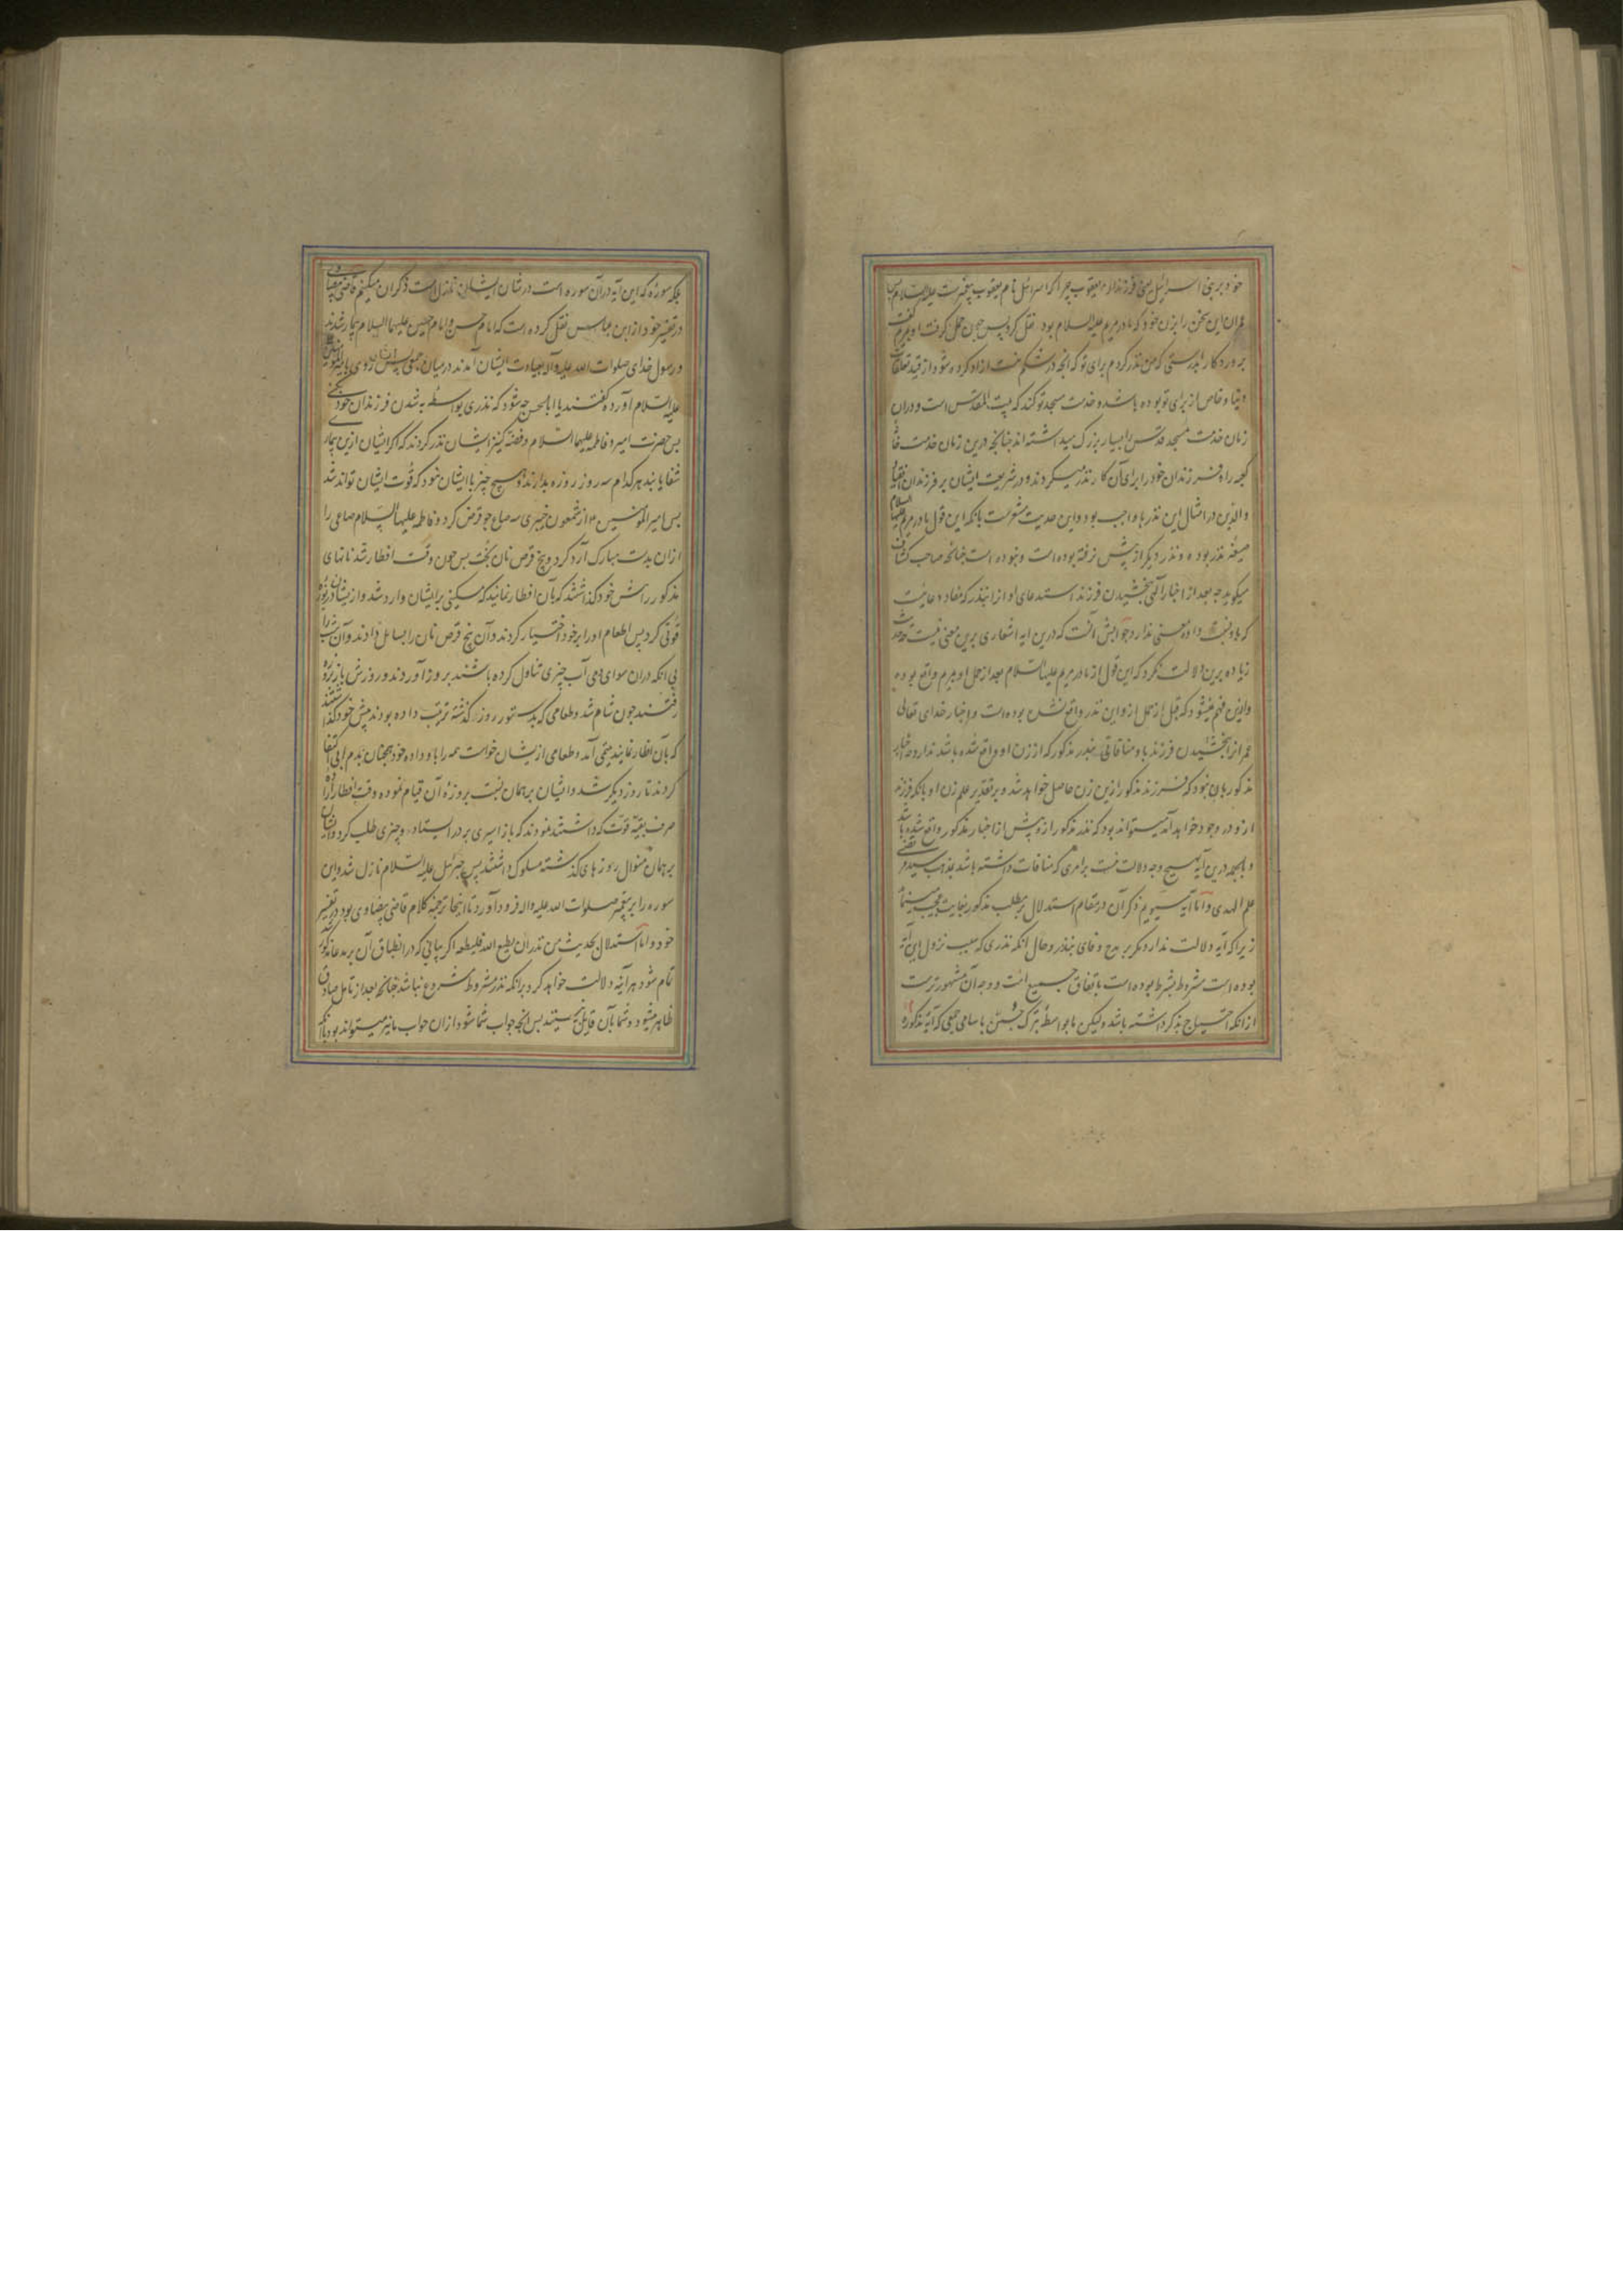 خود بر بنی اسرائیل یعنی فرزندان یعقوب چرا که اسرائیل نام یعقوب پیغمبرست علیه السلام پس
عمران این سخن را بزن خود که مادر مریم علیه السلام بود نقل کرد پس چون حمل گرفت او بمریم گفت
پروردگارا بدرستی که من نذر کردم برای تو که آنچه در شکم منست ازاد کرده شود از قید تعلقات
دنیا و خاص از برای تو بوده باشد و خدمت مسجد تو کند که بیت المقدس است و دران
زمان خدمت مسجد قدس را بسیار بزرگ میداشته اند چنانچه درین زمان خدمت خانه
کعبه را و فرزندان خود را برای آن کار نذر میکردند و در شریعت ایشان بر فرزندان انقیاد
والدین در امثال این نذرها واجب بود و این حدیث مشعرست بانکه این قول مادر مریم علیها السلام
صیغه نذر بوده و نذر دیگر از پیش نرفته بوده است و نبوده است چنانچه صاحب کشاف
میگوید چه بعد از اخبار آلهی ببخشیدن فرزند استدعای او از این نذر که مفاد دعا نیست
که باو نسبت داده معنی ندارد جوابش آنست که درین ایه اشعاری برین معنی نیست و حدیث
زیاده برین دلالت نکرد که این قول از مادر مریم علیها السلام بعد از حمل او بمریم واقع بوده
و ازین فهم نمیشود که قبل از حمل ازو این نذر واقع نشده بوده است و اخبار خدای تعالی
عمران را ببخشیدن فرزند باو منافاتی بنذر مذکور که از زن او واقع شده باشد ندارد چه اخبار
مذکور بان نبود که فرزند مذکور ازین زن حاصل خواهد شد و بر تقدیر علم زن او بانکه فرزند
ازو در وجود خواهد آمد میتواند بود که نذر مذکور ازو پیش از اخبار مذکور واقع شده باشد
و بالجمله درین آیه هیچ وجه دلالت نیست بر امری که منافات داشته باشد بمذهب سید مرتضی
علم الهدی و اما آیه سیوم ذکر آن در مقام استدلال بر مطلب مذکور بغایت عجیب مینماید
زیرا که آیه دلالت ندارد مگر بر مدح وفای بنذر و حال انکه نذری که سبب نزول این آیه
بوده است مشروط بشرط بوده است باتفاق جمیع امت و وجه آن مشهورترست
ازانکه احتیاج بذکر داشته باشد ولیکن ما بواسطه تبرک جستن باسامی جمعی که آیه مذکوره
بلکه سوره که این آیه دران سوره است در شان ایشان نازل است ذکر ان میکنیم قاضی بیضاوی
در تفسیر خود از ابن عباس نقل کرده است که امام حسن و امام حسین علیهما السلام بیمار شدند
و رسول خدای صلوات الله علیه و آله بعیادت ایشان آمدند در میان جمعی پس ایشان روی بامیر المؤمنین
علیه السلام آورده گفتند یا ابا الحسن چه شود که نذری بواسطه به شدن فرزندان خود کنی
پس حضرت امیر و فاطمه علیهما السلام و فضه کنیز ایشان نذر کردند که اگر ایشان ازین بیماری
شفا یابند هر کدام سه روز روزه بدارند و هیچ چیز با ایشان نبود که قوت ایشان تواند شد
پس امیر المؤمنین ع از شمعون خیبری سه صاع جو قرض کرد و فاطمه علیها السلام صاعی را
ازان بدست مبارک آرد کرد و پنج قرص نان پخت پس چون وقت افطار شد نانهای
مذکور را پیش خود گذاشتند که بآن افطار نمایند که مسکینی بر ایشان وارد شد و از ایشان دریوزه
قوتی کرد پس اطعام او را بر خود اختیار کردند و آن پنج قرص نان را بسایل دادند و آن شب را
بی انکه دران سوای دمی آب چیزی تناول کرده باشند بروز آوردند و روزش باز روزه
رفتند چون شام شد و طعامی که بدستور روز گذشته ترتیب داده بودند پیش خود گذاشتند
که بآن افطار نمایند یتیمی آمد و طعامی از ایشان خواست همه را باو داده خود همچنان بدم آبی اکتفا
کردند تا روز دیگر شد و ایشان بر همان نیت بروزه آن قیام نموده وقت افطار اراده
صرف بقیه قوت که داشتند نمودند که باز اسیری بر در ایستاد و چیزی طلب کرد و ایشان
بر همان منوال روزهای گذشته مسلوک داشتند پس جبرئیل علیه السلام نازل شد و این
سوره را بر پیغمبر صلوات الله علیه و آله فرود آورد تا اینجا ترجمه کلام قاضی بیضاوی بود در تفسیر
خود و اما استدلال بحدیث من نذر ان یطیع الله فلیطعه اگر بیانی که در انطباق آن بر مدعا مذکور شد
تمام شود هر آینه دلالت خواهد کرد برانکه نذر مشروط مشروع نباشد چنانچه بعد از تامل صادق
ظاهر میشود و شما بآن قایل نیستید پس انچه جواب شما شود ازان جواب ما نیز میتواند بود بانکه